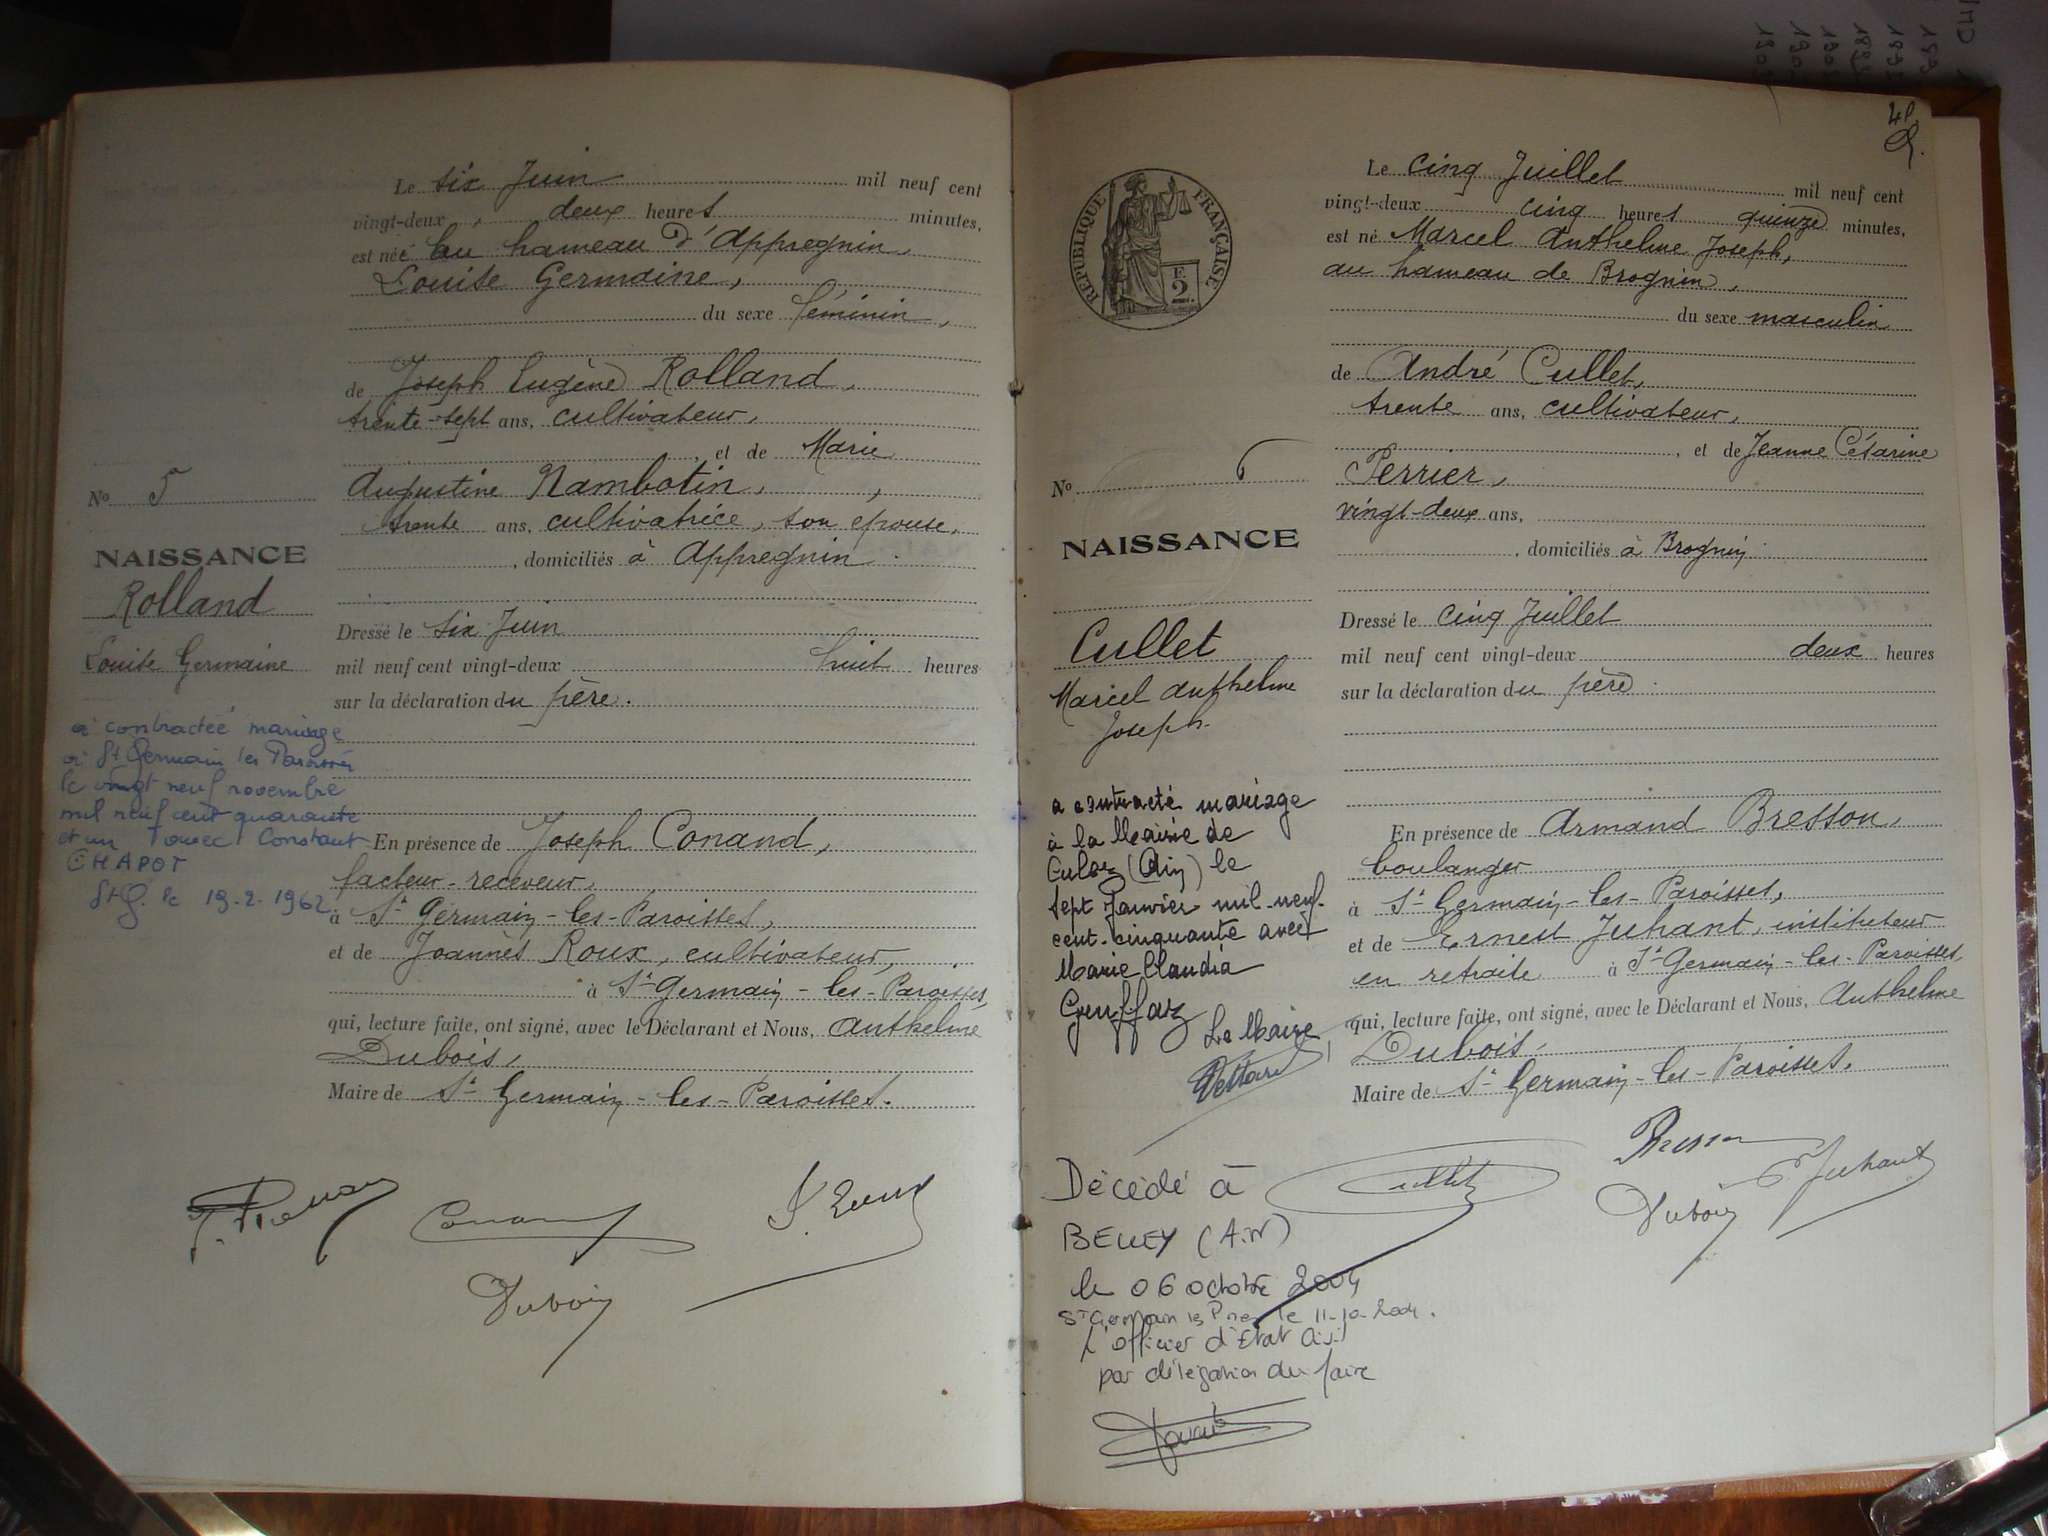 Le six Juin mil neuf cent
vingt-deux, deux heures minutes,
est née au hameau d'Appregnin,
Louise Germaine,
du sexe féminin,
de Joseph Eugène Rolland,
trente-sept ans, cultivateur,
, et de Marie
Augustine Nambotin,
trente ans, cultivatrice, son epouse,
, domiciliés à Appregnin.
No 5
NAISSANCE
Rolland
Louise Germaine
Dressé le six Juin
mil neuf cent vingt-deux huit heures
sur la déclaration du père.
a contractée mariage
à St Germain les Paroisses
le vingt neuf novembre
mil neuf cent quarante
et un avec Constant
CHAPOT
St G. le 19-2-1962
En présence de Joseph Conand,
facteur-receveur,
à St Germain-les-Paroisses,
et de Joannès Roux, cultivateur,
à St Germain-les-Paroisses
qui, lecture faite, ont signé, avec le Déclarant et Nous, Anthelme
Dubois,
Maire de St Germain-les-Paroisses.
Conand
Dubois
RÉPUBLIQUE FRANÇAISE
F.
2
Le cinq Juillet mil neuf cent
vingt-deux cinq heures quinze minutes,
est né Marcel Anthelme Joseph,
au hameau de Brognin,
du sexe masculin
de André Cullet,
trente ans, cultivateur,
, et de Jeanne Césarine
Perrier,
vingt-deux ans,
, domiciliés à Brognin.
No 6
NAISSANCE
Cullet
Marcel Anthelme
Joseph.
Dressé le cinq Juillet
mil neuf cent vingt-deux deux heures
sur la déclaration du père.
a contracté mariage
à la Mairie de
Culoz (Ain) le
sept Janvier mil-neuf-
cent-cinquante avec
Marie Claudia
Genffaz
Le Maire
En présence de Armand Bresson,
boulanger
à St Germain-les-Paroisses,
et de Ernest Juhant, instituteur
en retraite à St Germain-les-Paroisses,
qui, lecture faite, ont signé, avec le Déclarant et Nous, Anthelme
Dubois,
Maire de St Germain-les-Paroisses.
Cullet
Bresson
E Juhant
Dubois
Décédé à
BELLEY (AIN)
le 06 octobre 2004
St Germain les P le 11-10-2004.
L'officier d'Etat Civil
par délégation du Maire